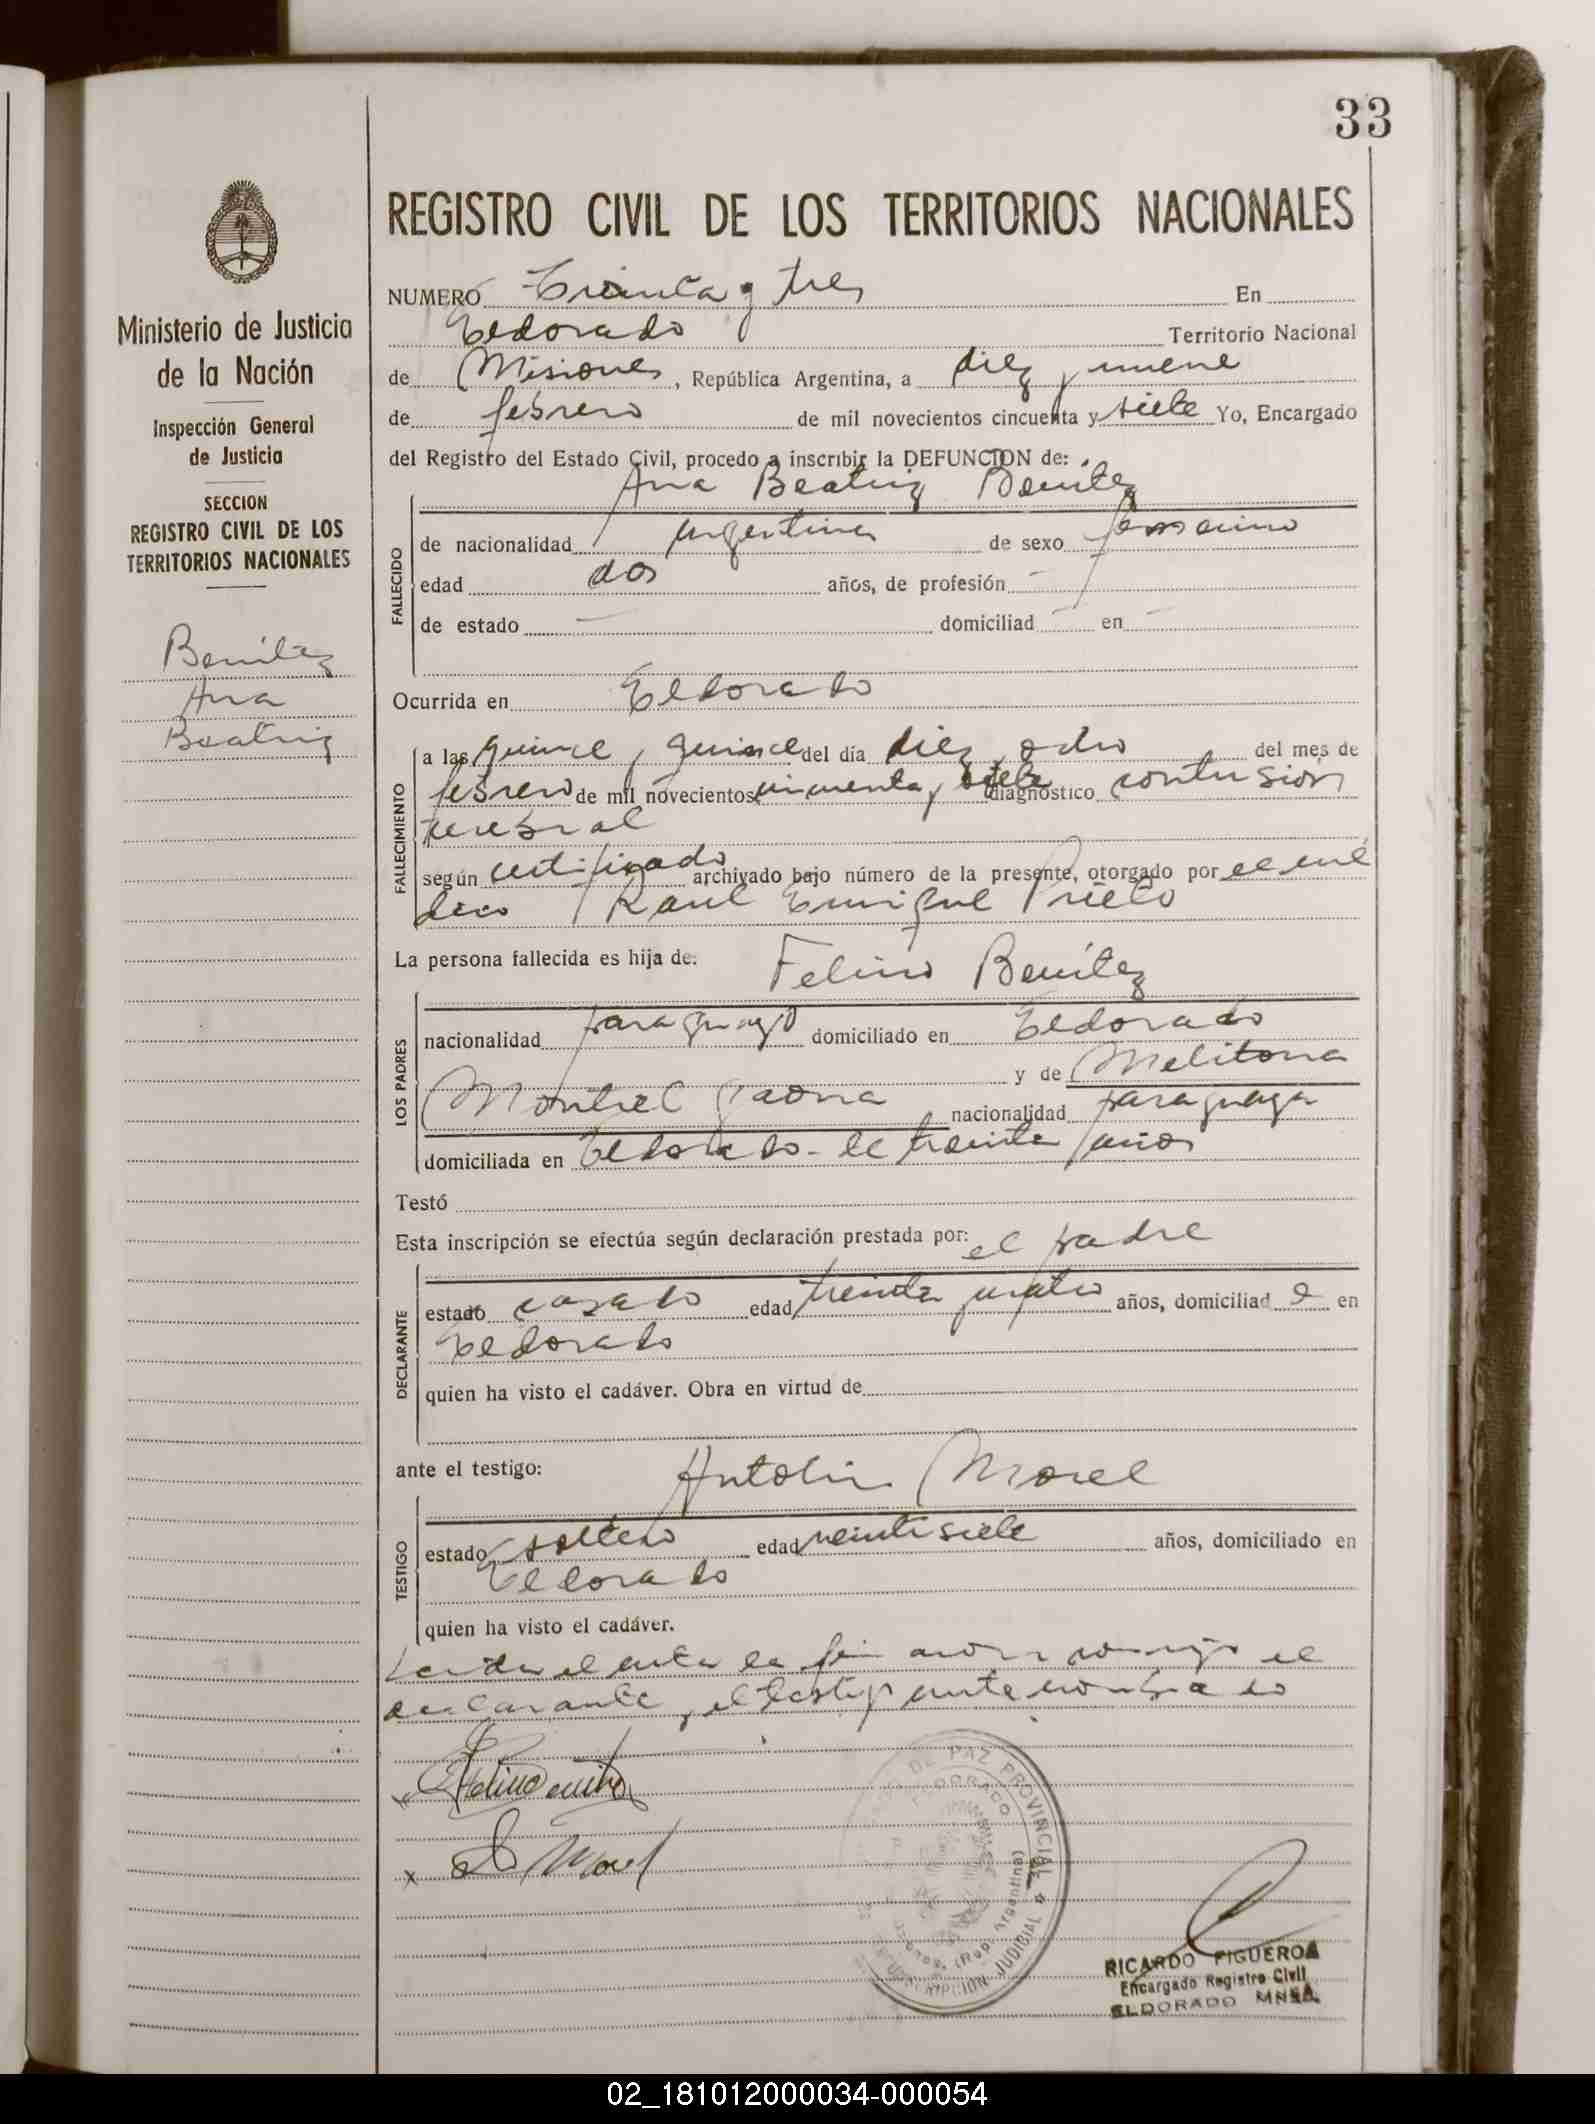 33
REGISTRO CIVIL DE LOS TERRITORIOS NACIONALES
Ministerio de Justicia
de la Nación
Inspección General
de Justicia
SECCION
REGISTRO CIVIL DE LOS
TERRITORIOS NACIONALES
Benítez
Ana
Beatriz
NUMERO Treinta y tres En
Eldorado Territorio Nacional
de Misiones, República Argentina, a diez y nueve
de febrero de mil novecientos cincuenta y siete Yo, Encargado
del Registro del Estado Civil, procedo a inscribir la DEFUNCION de:
Ana Beatriz Benítez
FALLECIDO
de nacionalidad argentina de sexo femenino
edad dos años, de profesión —
de estado — domiciliad — en —
Ocurrida en Eldorado
FALLECIMIENTO
a las quince y quince del día diez y ocho del mes de
febrero de mil novecientos cincuenta y siete diagnóstico contusión
cerebral
según certificado archivado bajo número de la presente, otorgado por el mé
dico Raul Enrique Prieto
La persona fallecida es hija de: Felino Benítez
LOS PADRES
nacionalidad paraguayo domiciliado en Eldorado
y de Melitona
Montiel Gaona nacionalidad paraguaya
domiciliada en Eldorado - de treinta años
Testó
Esta inscripción se efectúa según declaración prestada por: el padre
DECLARANTE
estado casado edad treinta y cuatro años, domiciliad o en
Eldorado
quien ha visto el cadáver. Obra en virtud de
ante el testigo: Antolin Morel
TESTIGO
estado soltero edad veintisiete años, domiciliado en
Eldorado
quien ha visto el cadáver.
Leída el acta la firmaron conmigo el
declarante y el testigo ante nombrado
x Felino Benitez
x A Morel
DE PAZ PROVINCIAL
ELDORADO
Misiones, (Rep. Argentina)
CIRCUNSCRIPCION JUDICIAL
RICARDO FIGUEROA
Encargado Registro Civil
ELDORADO MNES.
02_181012000034-000054